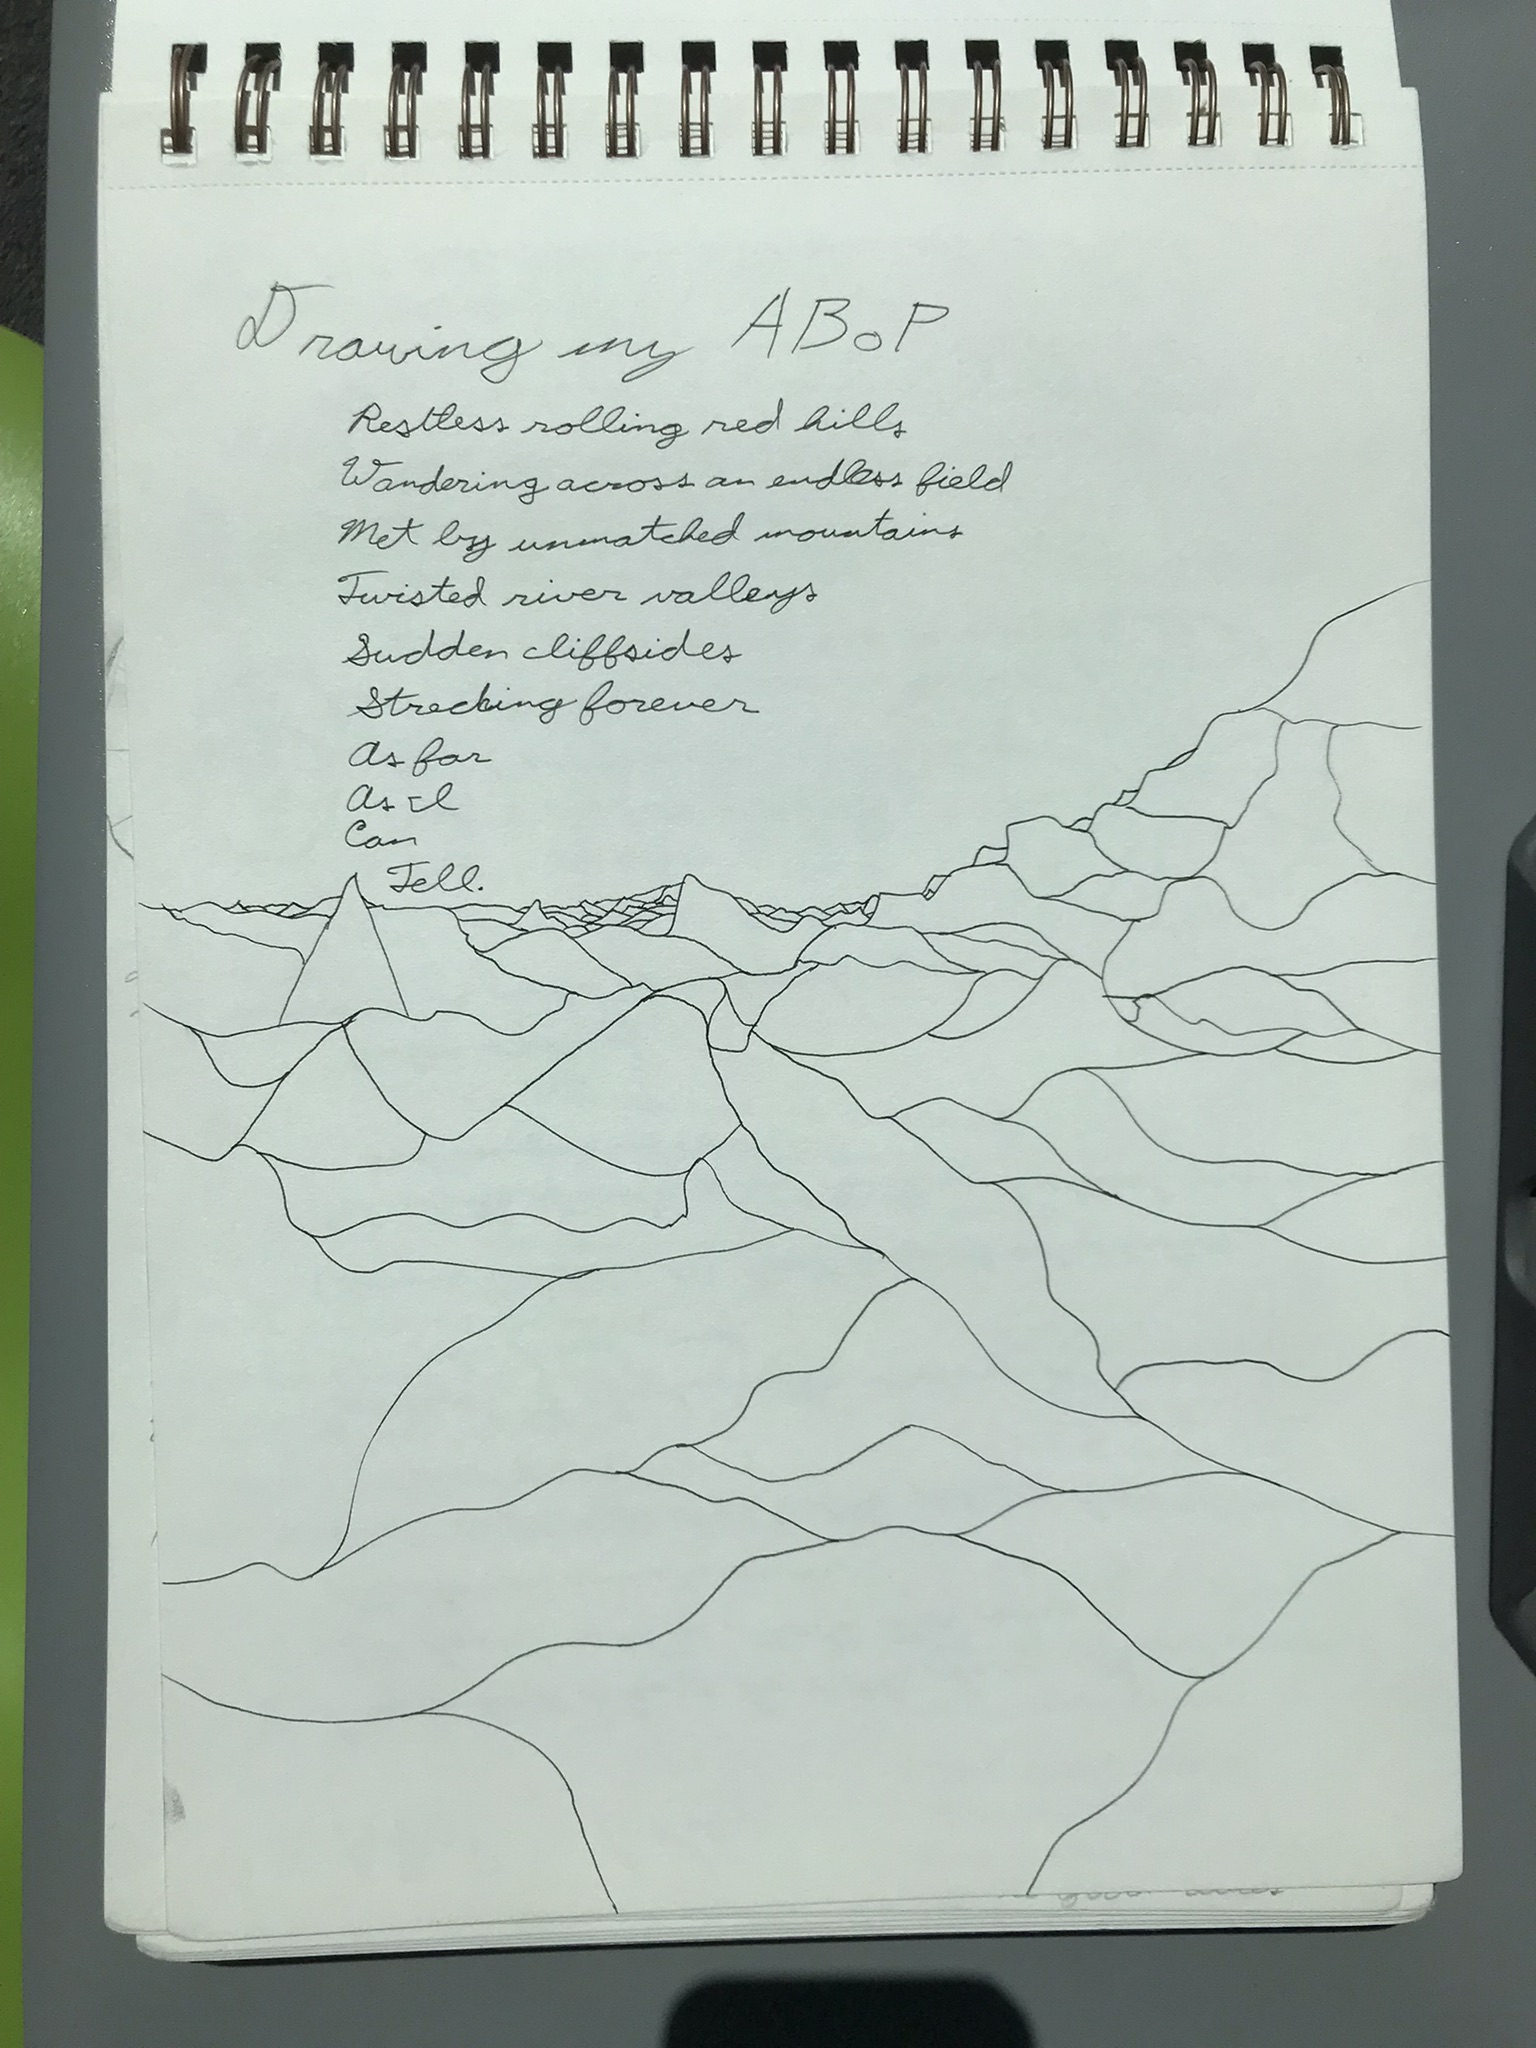 Drawing my ABoP
Restless rolling red hills
Wandering across an endless field
Met by unmatched mountains
Twisted river valleys
Sudden cliffsides
Streching forever
As far
As I
Can
Tell.